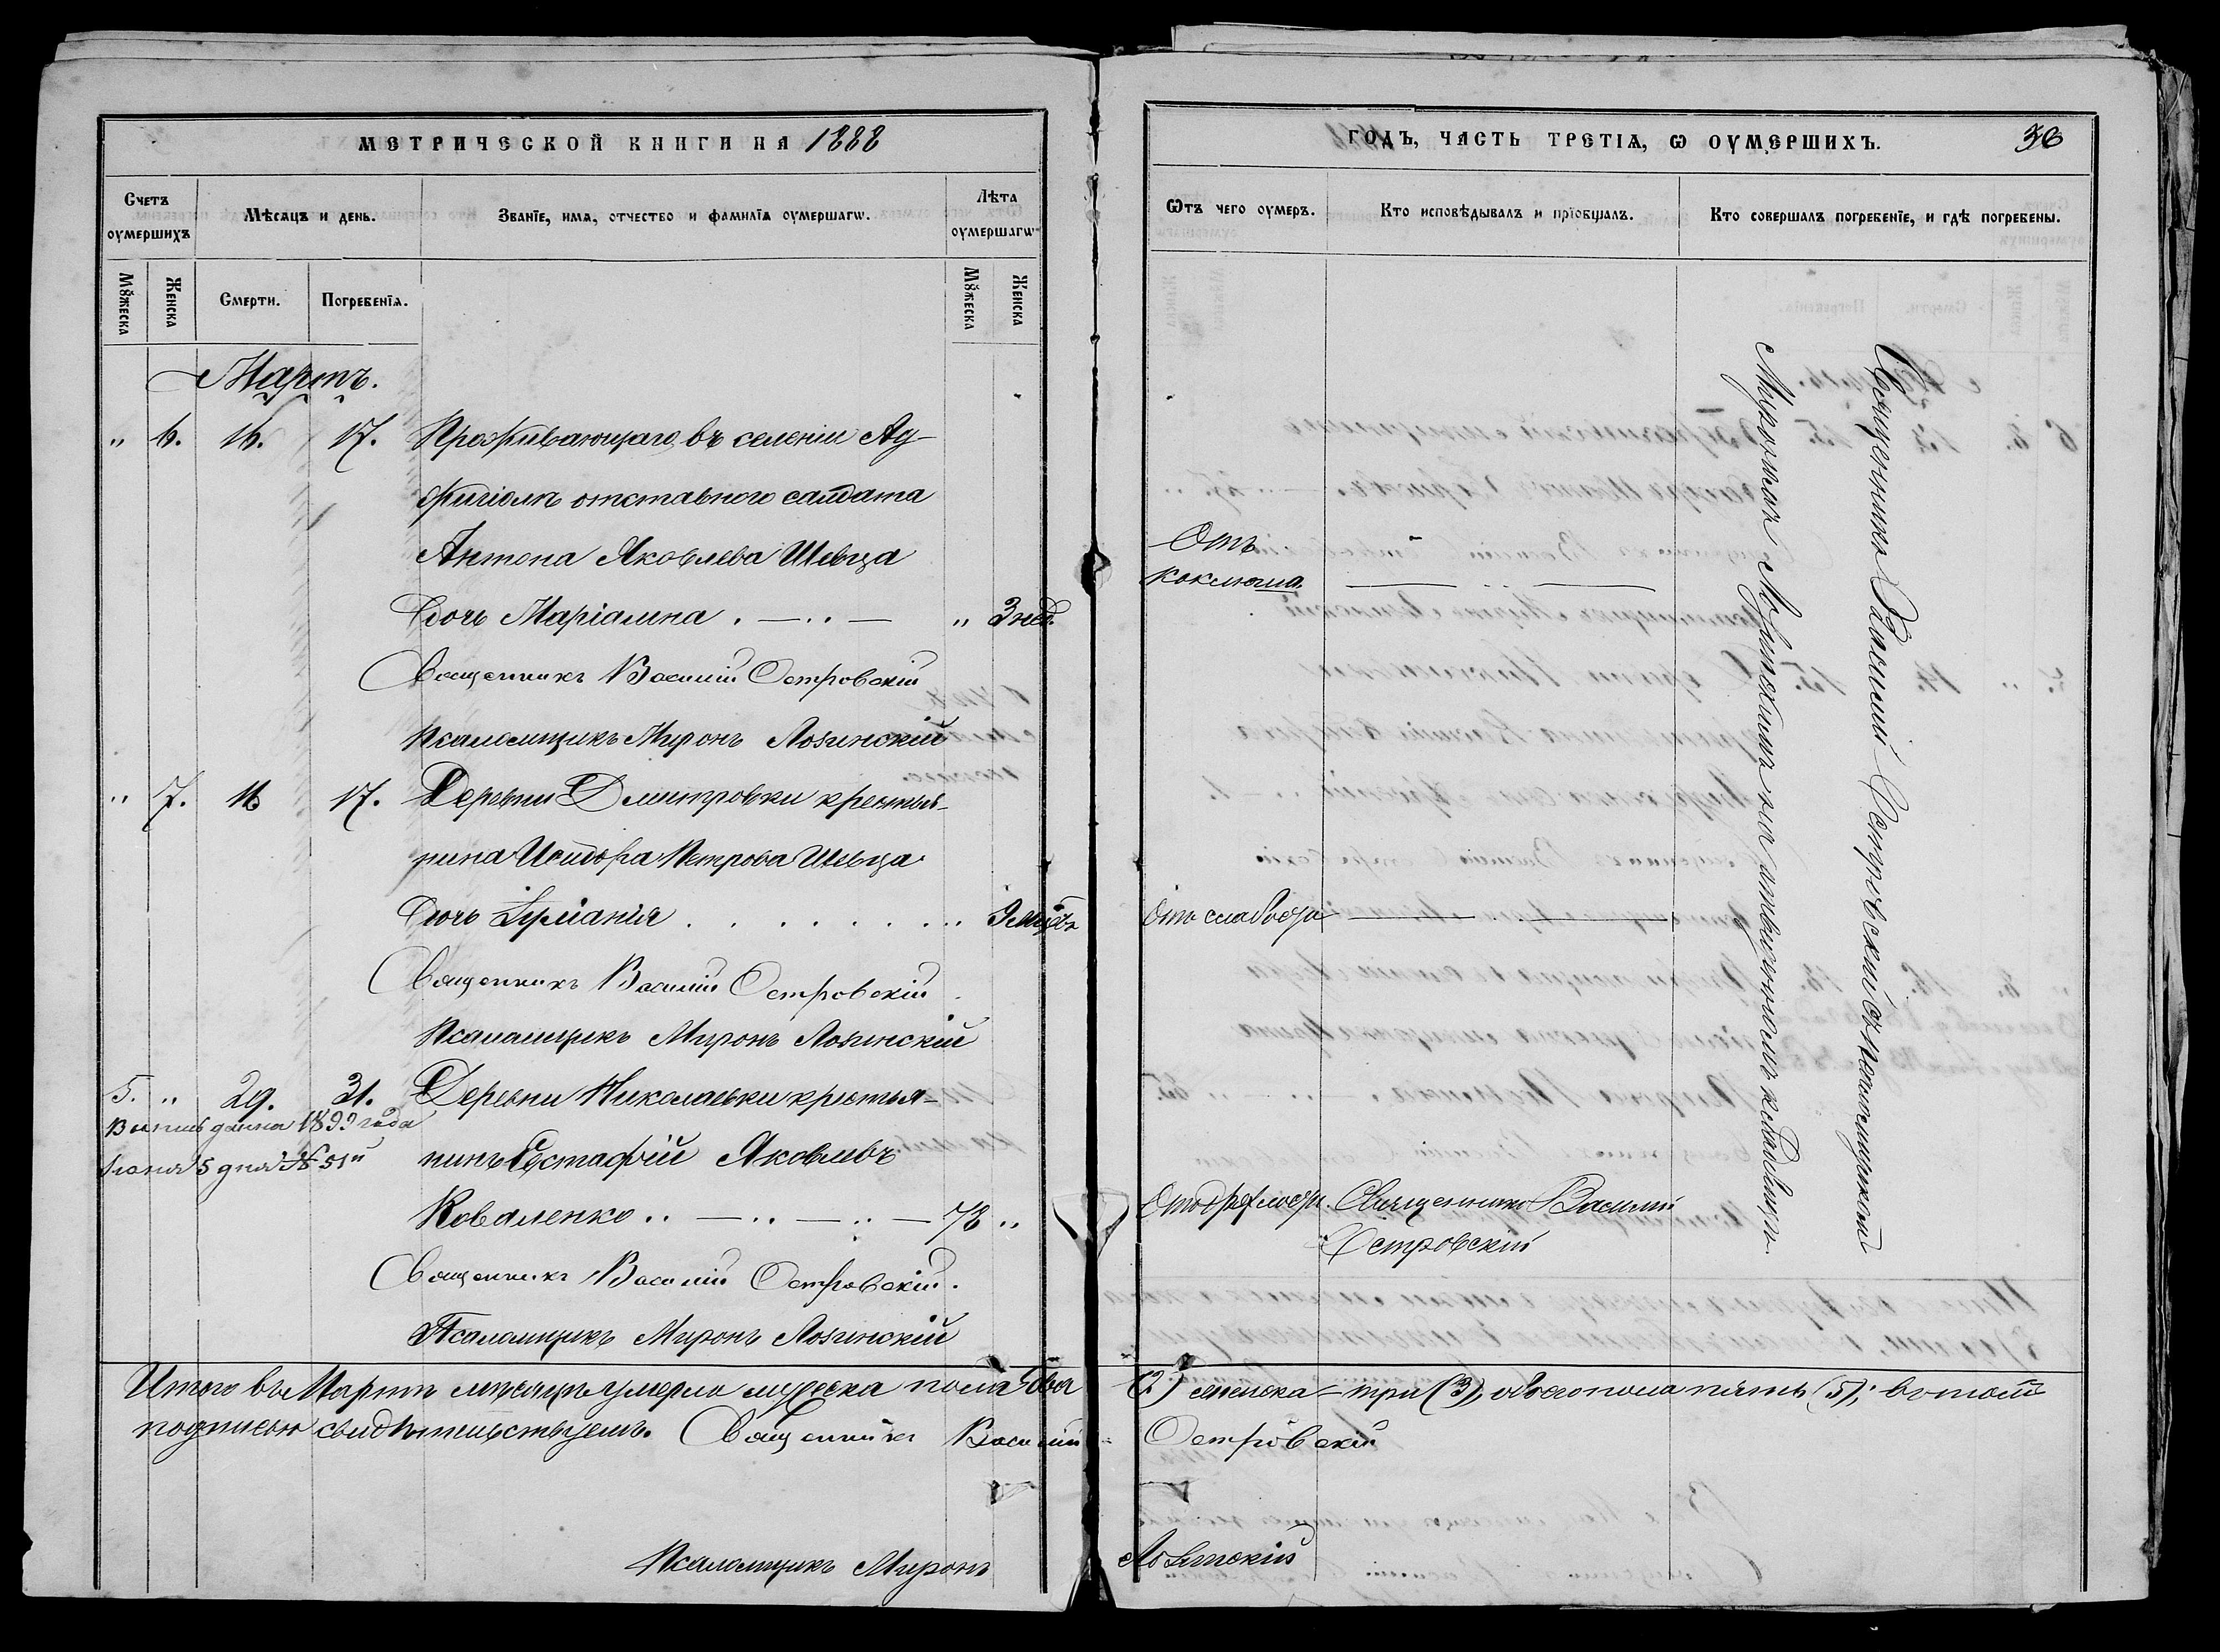 МЕТРИЧЕСКОЙ КНИГИ НА 1888
Счетъ оумершихъ
Мѣсяцъ и день.
Званїе, имя, отчество и фамилїя оумершагѡ.
Лѣта оумершагѡ
Мꙋжеска
Женска
Смерти.
Погребенїя.
Мꙋжеска
Женска
Мартъ.
" 6. 16. 17. Проживающаго въ селеніи Ад-
жигіолъ отставного салдата
Антона Яковлева Шевца
дочь Маріамна . — .. — " 3 нед.
Священникъ Василій Островскій
Псаломщикъ Миронъ Лозинскій
" 7. 16 17. Деревни Дмитровки крестья-
нина Исидора Петрова Шевца
дочь Іуліанія . . . . . . . . 9 мѣсц.
Священникъ Василій Островскій
Псаломщикъ Миронъ Лозинскій
5. " 29. 31. Деревни Николаевки крестья-
Выпись дана 1899 года
нинъ Евстафій Яковлевъ
5 дня № 51й
Коваленко .. — .. — .. — 78 "
Священникъ Василій Островскій.
Псаломщикъ Миронъ Лозинскій
Итого въ Мартѣ мѣсяцѣ умерло мужеска пола два
подписью свидѣтельствуемъ. Священникъ Василій
Псаломщикъ Миронъ
ГОДЪ, ЧАСТЬ ТРЕТІѦ, Ѡ ОУМЕРШИХЪ. 36
Ѡтъ чего оумеръ.
Кто исповѣдывалъ и прїобщалъ.
Кто совершалъ погребенїе, и гдѣ погребены.
Отъ
коклюша.
Отъ слабости
Отъ дряхлости. Священникъ Василій
Островскій
Священникъ Василій Островскій съ псаломщикомъ
Мирономъ Лозинскимъ на кладбищѣ.
(2) женска — три (3), обоего пола пять (5); въ томъ
Островскій
Лозинскій